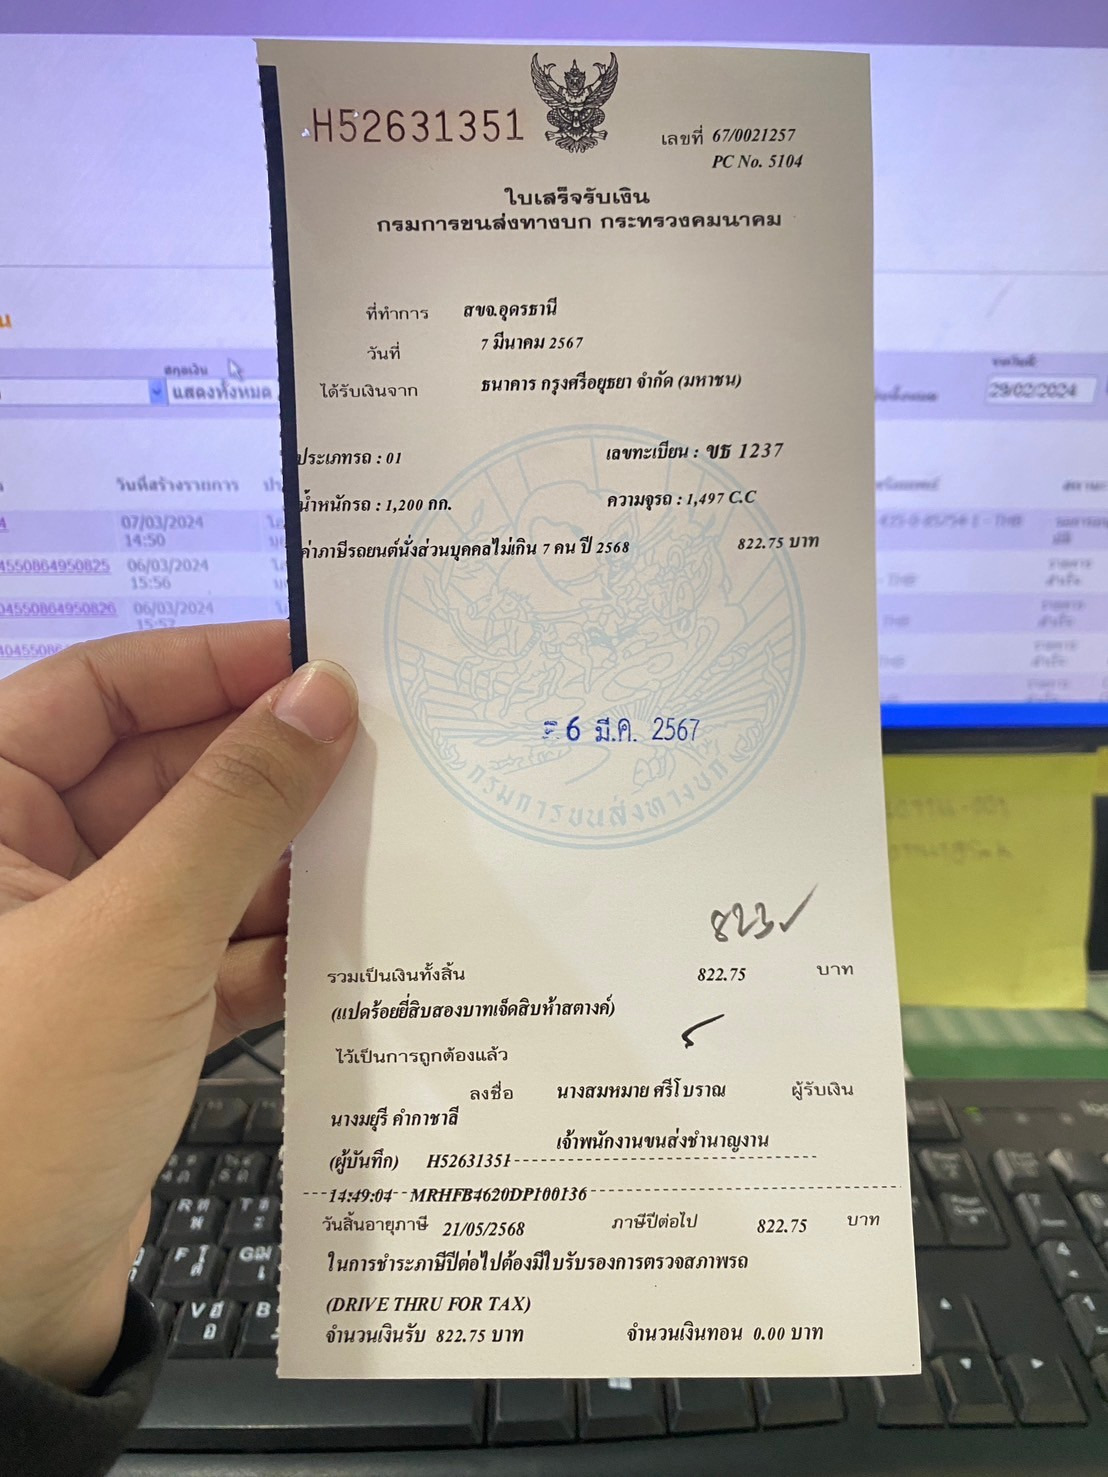 H52631351
เลขที่ 67/0021257
PC No. 5104
ใบเสร็จรับเงิน
กรมการขนส่งทางบก กระทรวงคมนาคม
ที่ทำการ สขจ.อุดรธานี
วันที่ 7 มีนาคม 2567
ได้รับเงินจาก ธนาคาร กรุงศรีอยุธยา จำกัด (มหาชน)
ประเภทรถ : 01 เลขทะเบียน : ขธ 1237
น้ำหนักรถ : 1,200 กก. ความจุรถ : 1,497 C.C
ค่าภาษีรถยนต์นั่งส่วนบุคคลไม่เกิน 7 คน ปี 2568 822.75 บาท
6 มี.ค. 2567
กรมการขนส่งทางบก
823
รวมเป็นเงินทั้งสิ้น 822.75 บาท
(แปดร้อยยี่สิบสองบาทเจ็ดสิบห้าสตางค์)
ไว้เป็นการถูกต้องแล้ว
ลงชื่อ นางสมหมาย ศรีโบราณ ผู้รับเงิน
นางมยุรี คำกาชาลี
เจ้าพนักงานขนส่งชำนาญงาน
(ผู้บันทึก) H52631351
14:49:04 MRHFB4620DP100136
วันสิ้นอายุภาษี 21/05/2568 ภาษีปีต่อไป 822.75 บาท
ในการชำระภาษีปีต่อไปต้องมีใบรับรองการตรวจสภาพรถ
(DRIVE THRU FOR TAX)
จำนวนเงินรับ 822.75 บาท จำนวนเงินทอน 0.00 บาท
สกุลเงิน
แสดงทั้งหมด
29/02/2024
วันที่สร้างรายการ
07/03/2024
14:50
4550864950825 06/03/2024
15:56
04550864950826 06/03/2024
15:57